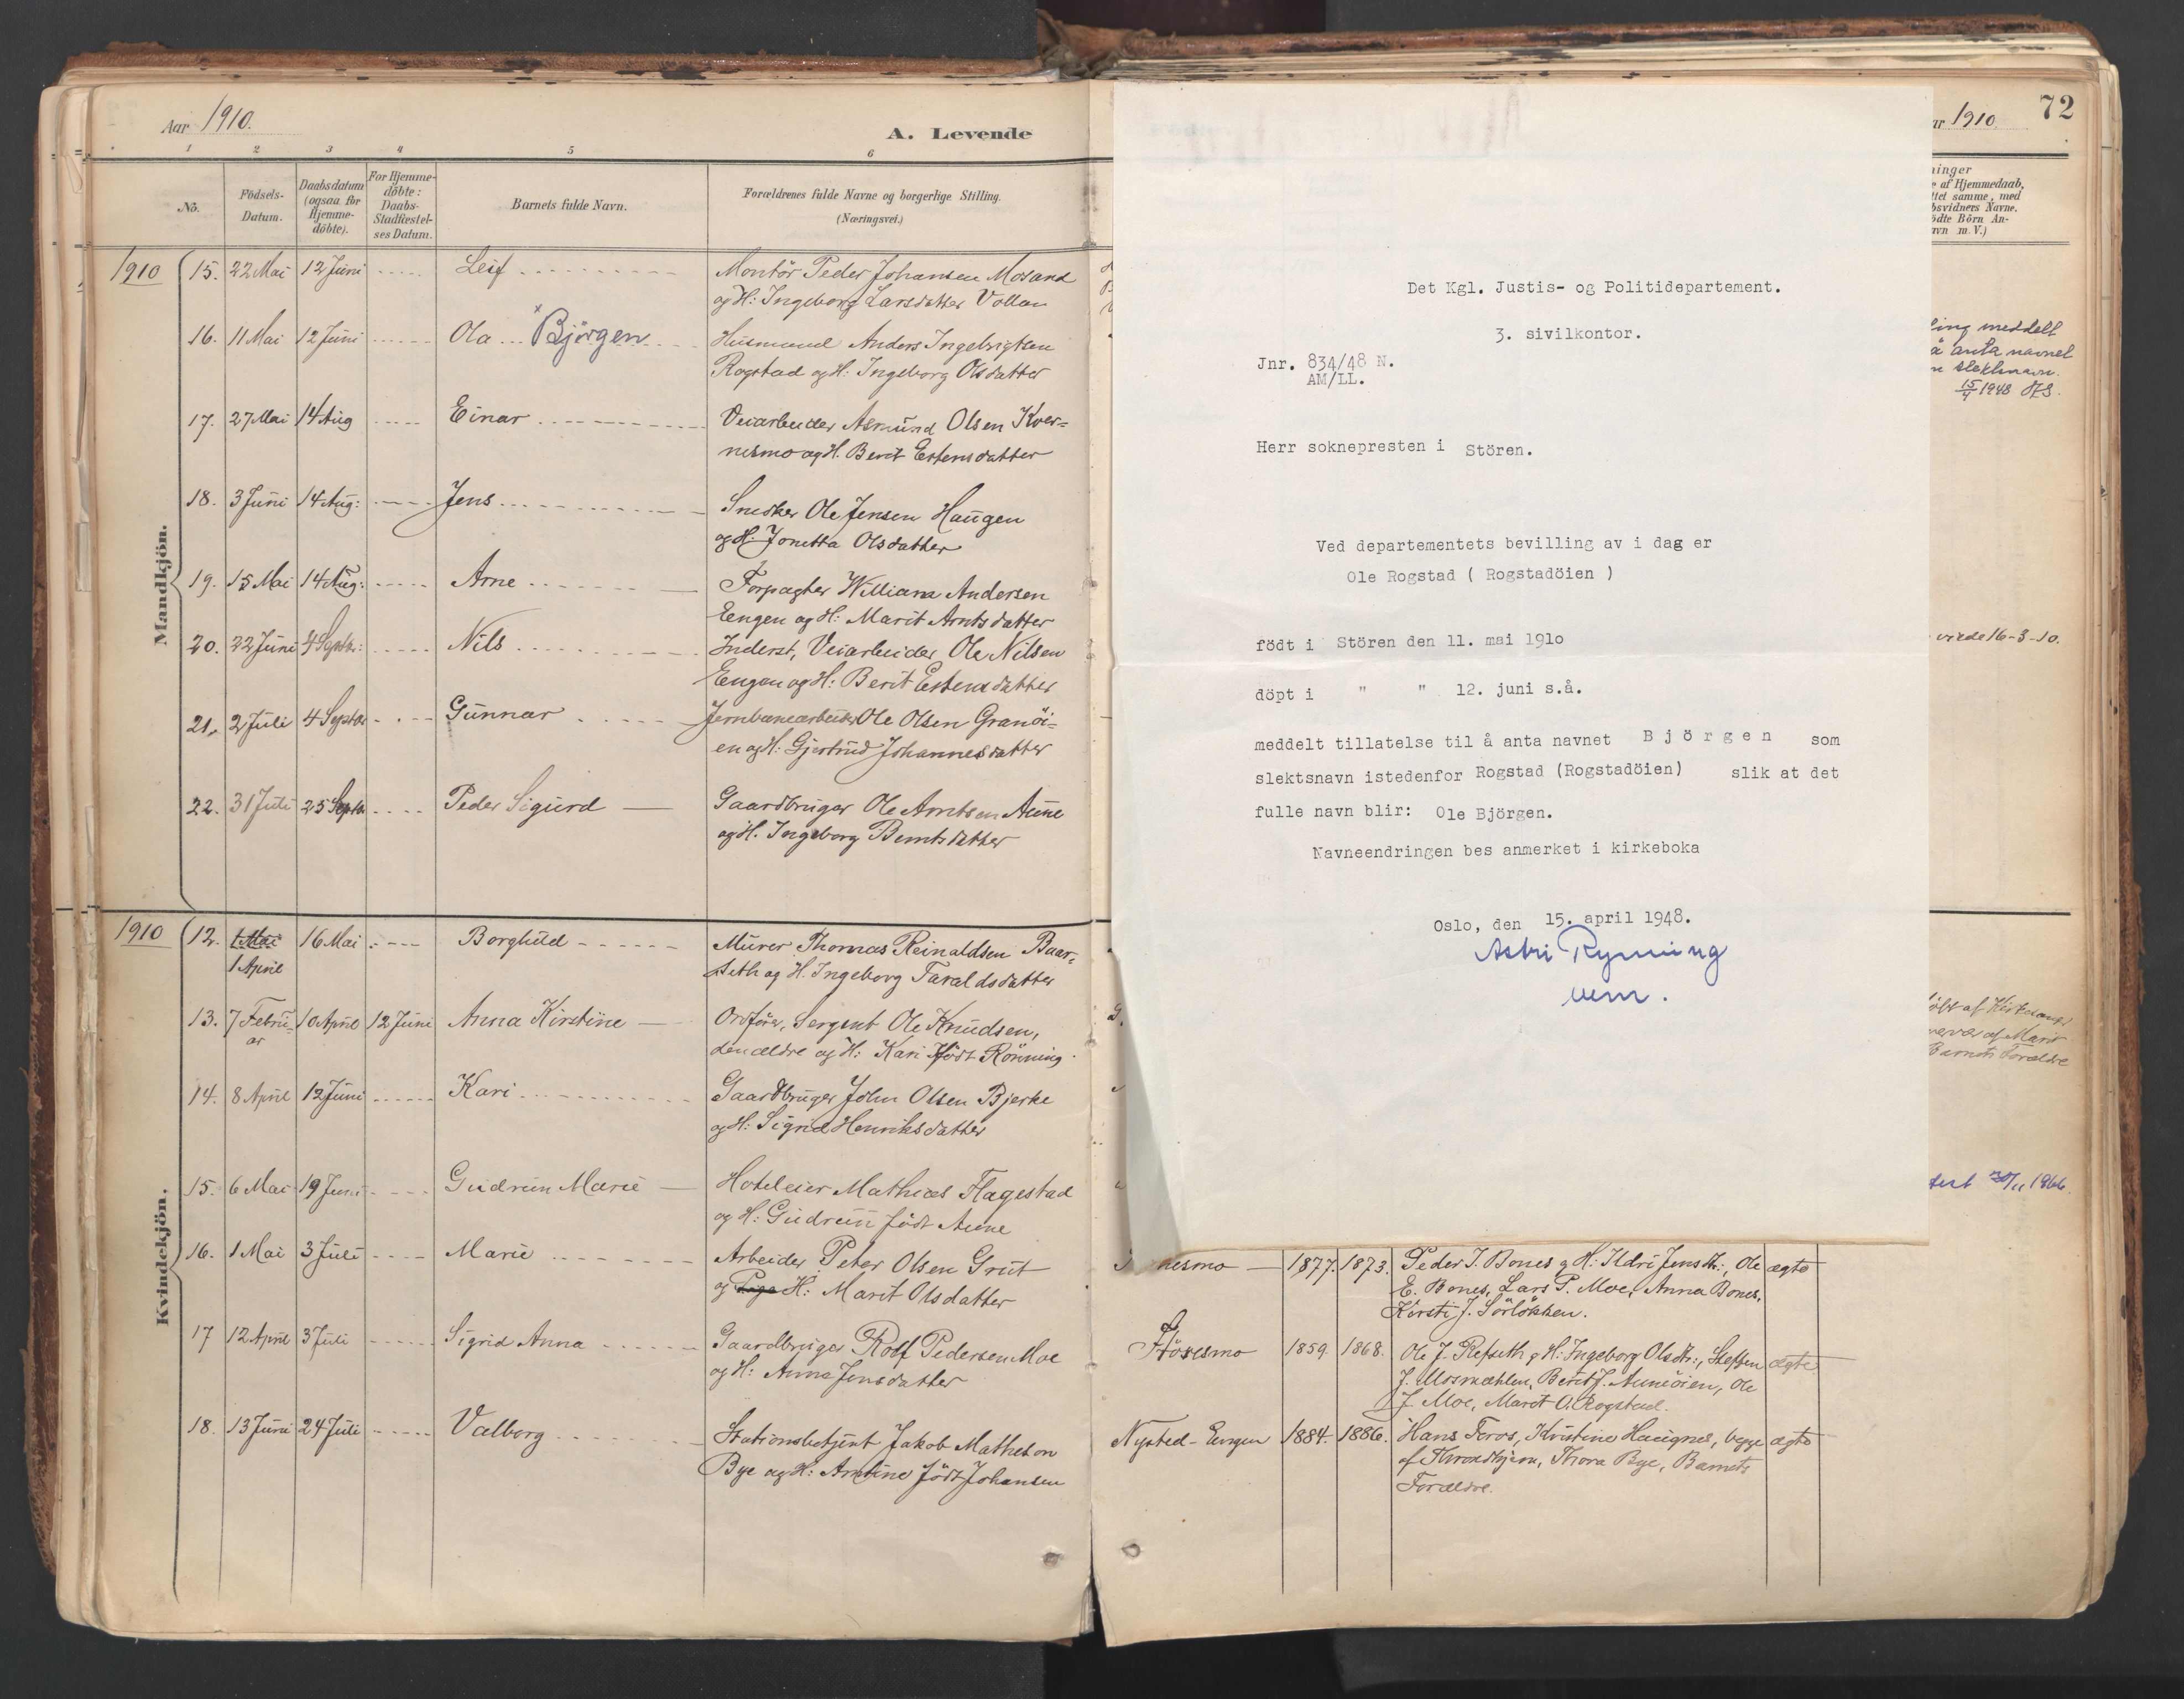 Aar 1910.
A. Levende
1 2 3 4 5 6
No.
Födsels-
Datum.
Daabsdatum
(ogsaa for
Hjemme-
döbte).
For Hjemme-
döbte:
Daabs-
Stadfæstel-
ses Datum.
Barnets fulde Navn.
Forældrenes fulde Navne og borgerlige Stilling.
(Næringsvei.)
Mandkjön.
1910 15. 22 Mai 12 Juni Leif Montör Peder Johansen Mosand
og H: Ingeborg Larsdatter Vollan
16. 11 Mai 12 Juni Ola × Björgen Husmand Anders Ingebrigtsen
Rogstad og H: Ingeborg Olsdatter
17. 27 Mai 14 Aug Einar Veiarbeider Asmund Olsen Kver=
nesmo og H. Berit Estensdatter
18. 3 Juni 14 Aug: Jens Snedker Ole Jensen Haugen
og H. Jonetta Olsdatter
19. 15 Mai 14 Aug: Arne Forpagter William Andersen
Eengen og H: Marit Arntsdatter
20. 22 Juni 4 Septbr: Nils Inderst, Veiarbeider Ole Nilsen
Eengen og H: Berit Estensdatter
21. 2 Juli 4 Septbr Gunnar Jernbanearbeider Ole Olsen Granöi=
en og H: Gjertrud Johannesdatter
22. 31 Juli 25 Septbr Peder Sigurd Gaardbruger Ole Arntsen Aune
og H. Ingeborg Berntsdatter
Kvindekjön.
1910 12. 1 Mai 16 Mai Borghild Murer Thomas Reinaldsen Baar-
1 April seth og H. Ingeborg Taraldsdatter
13. 7 Febru- 10 April 12 Juni Anna Kirstine Ordförer, Sergent Ole Knudsen,
ar den ældre og H: Kari födt Rönning.
14. 8 April 12 Juni Kari Gaardbruger John Olsen Bjerke
og H: Sigrid Henriksdatter
15. 6 Mai 19 Juni Gudrun Marie Hoteleier Mathias Flagestad
og H: Gudrun födt Aune
16. 1 Mai 3 Juli Marie Arbeider Peter Olsen Grut
og Pige H: Marit Olsdatter
17 12 April 3 Juli Sigrid Anna Gaardbruger Rolf Pedersen Moe
og H: Anne Jensdatter
18. 13 Juni 24 Juli Valborg Stationsbetjent Jakob Matheson
Bye og H: Arntine födt Johansen
Det Kgl. Justis- og Politidepartement.
3. sivilkontor.
Jnr. 834/48 N.
AM/LL.
Herr soknepresten i Stören.
Ved departementets bevilling av i dag er
Ole Rogstad ( Rogstadöien )
född i Stören den 11. mai 1910
döpt i " " 12. juni s.å.
meddelt tillatelse til å anta navnet Björgen som
slektsnavn istedenfor Rogstad (Rogstadöien) slik at det
fulle navn blir: Ole Björgen.
Navneendringen bes anmerket i kirkeboka
Oslo, den 15. april 1948.
Astri Rynning
72
ar 1910.
ninger
af Hjemmedaab,
ttet samme, med
bsvidners Navne.
ödte Börn An-
avn m. V.)
ling meddelt
å anta navnet
n slektsnavn.
15/4 1948
virde 16-3-10.
Barnets Forældre
20/11 1966.
nesmo 1877. 1873. Peder J. Bones g H: Ildri Jensdtr:, Ole ægte
E. Bones, Lars P. Moe, Anna Bones,
Kirsti J. Sörlökken.
Störesmo 1859. 1868. Ole J. Refseth g H: Ingeborg Olsdtr:, Steffen ægte
J. Mosmælen, Berit J. Auneöien, Ole
J. Moe, Marit O. Rogstad.
Nysted-Eengen 1884. 1886. Hans Foros, Kristine Haugnes, begge ægte
af Throndhjem, Thora Bye, Barnets
Forældre.